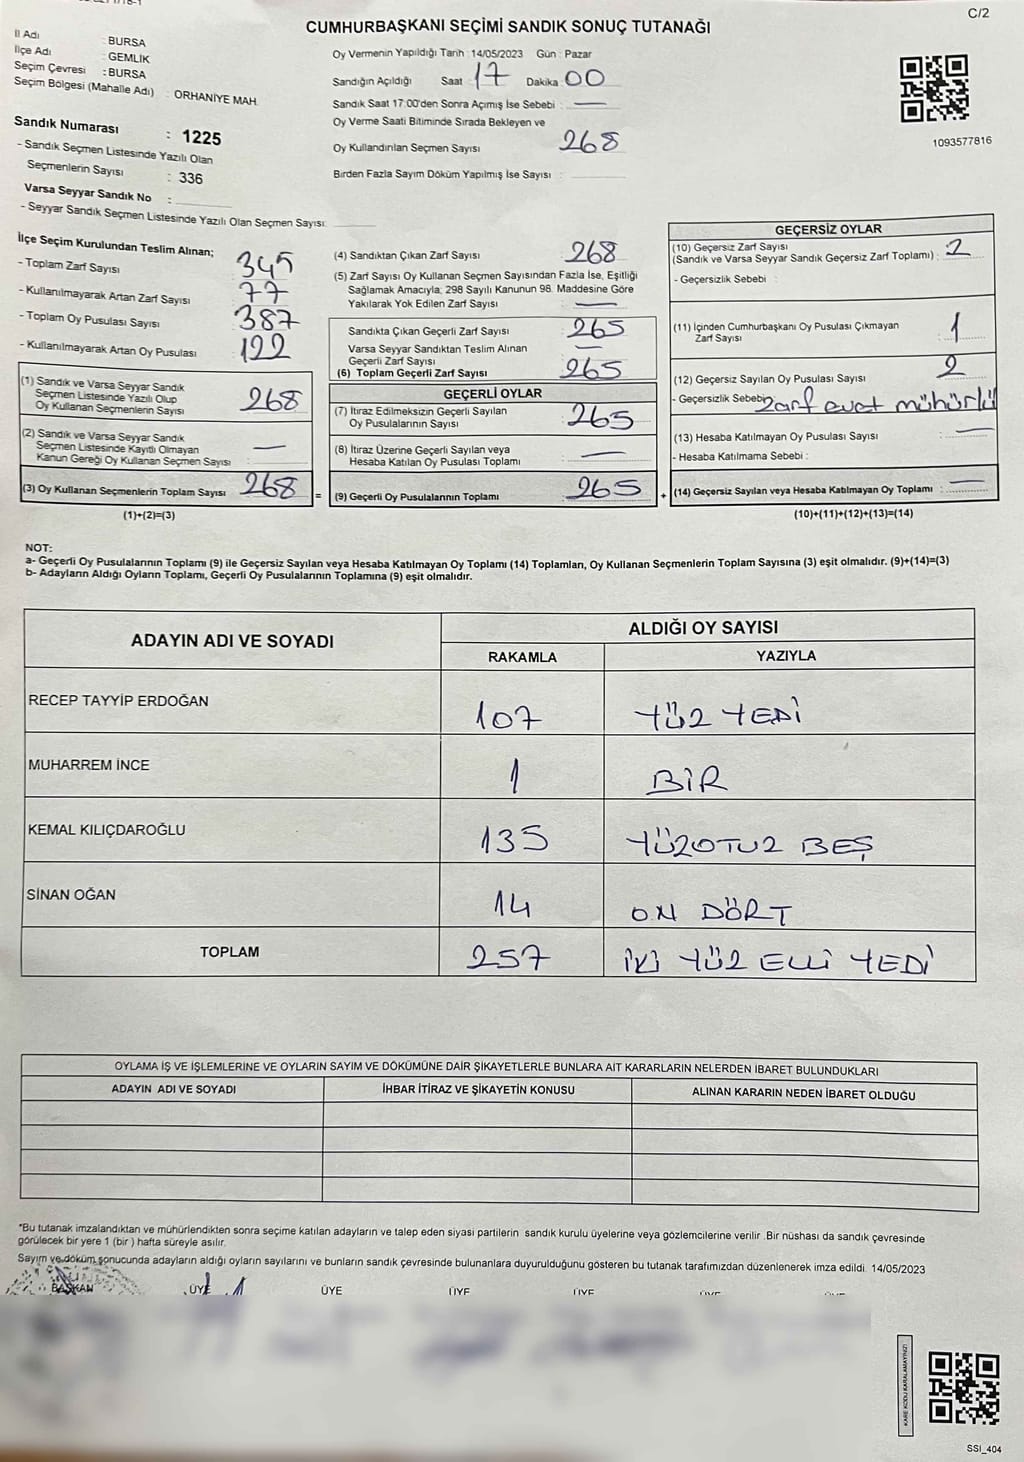 C/2
CUMHURBAŞKANI SEÇİMİ SANDIK SONUÇ TUTANAĞI
İl Adı : BURSA
İlçe Adı : GEMLİK
Seçim Çevresi : BURSA
Seçim Bölgesi (Mahalle Adı) : ORHANİYE MAH.
Sandık Numarası : 1225
- Sandık Seçmen Listesinde Yazılı Olan
Seçmenlerin Sayısı : 336
Varsa Seyyar Sandık No :
- Seyyar Sandık Seçmen Listesinde Yazılı Olan Seçmen Sayısı:
Oy Vermenin Yapıldığı Tarih : 14/05/2023 Gün : Pazar
Sandığın Açıldığı Saat : 17 Dakika : 00
Sandık Saat 17:00'den Sonra Açımış İse Sebebi : —
Oy Verme Saati Bitiminde Sırada Bekleyen ve
Oy Kullandırılan Seçmen Sayısı : 268
Birden Fazla Sayım Döküm Yapılmış İse Sayısı :
1093577816
İlçe Seçim Kurulundan Teslim Alınan;
- Toplam Zarf Sayısı : 345
- Kullanılmayarak Artan Zarf Sayısı : 77
- Toplam Oy Pusulası Sayısı : 387
- Kullanılmayarak Artan Oy Pusulası : 122
(1) Sandık ve Varsa Seyyar Sandık
Seçmen Listesinde Yazılı Olup
Oy Kullanan Seçmenlerin Sayısı : 268
(2) Sandık ve Varsa Seyyar Sandık
Seçmen Listesinde Kayıtlı Olmayan
Kanun Gereği Oy Kullanan Seçmen Sayısı : —
(3) Oy Kullanan Seçmenlerin Toplam Sayısı : 268
(1)+(2)=(3)
=
(4) Sandıktan Çıkan Zarf Sayısı : 268
(5) Zarf Sayısı Oy Kullanan Seçmen Sayısından Fazla İse, Eşitliği
Sağlamak Amacıyla; 298 Sayılı Kanunun 98. Maddesine Göre
Yakılarak Yok Edilen Zarf Sayısı : —
Sandıkta Çıkan Geçerli Zarf Sayısı : 265
Varsa Seyyar Sandıktan Teslim Alınan
Geçerli Zarf Sayısı : —
(6) Toplam Geçerli Zarf Sayısı : 265
GEÇERLİ OYLAR
(7) İtiraz Edilmeksizin Geçerli Sayılan
Oy Pusulalarının Sayısı : 265
(8) İtiraz Üzerine Geçerli Sayılan veya
Hesaba Katılan Oy Pusulası Toplamı : —
(9) Geçerli Oy Pusulalarının Toplamı : 265
+
GEÇERSİZ OYLAR
(10) Geçersiz Zarf Sayısı
(Sandık ve Varsa Seyyar Sandık Geçersiz Zarf Toplamı) : 2
- Geçersizlik Sebebi :
(11) İçinden Cumhurbaşkanı Oy Pusulası Çıkmayan
Zarf Sayısı : 1
(12) Geçersiz Sayılan Oy Pusulası Sayısı : 2
- Geçersizlik Sebebi: Zarf evet mühürlü
(13) Hesaba Katılmayan Oy Pusulası Sayısı : —
- Hesaba Katılmama Sebebi :
(14) Geçersiz Sayılan veya Hesaba Katılmayan Oy Toplamı : —
(10)+(11)+(12)+(13)=(14)
NOT:
a- Geçerli Oy Pusulalarının Toplamı (9) ile Geçersiz Sayılan veya Hesaba Katılmayan Oy Toplamı (14) Toplamları, Oy Kullanan Seçmenlerin Toplam Sayısına (3) eşit olmalıdır. (9)+(14)=(3)
b- Adayların Aldığı Oyların Toplamı, Geçerli Oy Pusulalarının Toplamına (9) eşit olmalıdır.
ADAYIN ADI VE SOYADI
ALDIĞI OY SAYISI
RAKAMLA YAZIYLA
RECEP TAYYİP ERDOĞAN 107 YÜZ YEDİ
MUHARREM İNCE 1 BİR
KEMAL KILIÇDAROĞLU 135 YÜZOTUZ BEŞ
SİNAN OĞAN 14 ON DÖRT
TOPLAM 257 İKİ YÜZ ELLİ YEDİ
OYLAMA İŞ VE İŞLEMLERİNE VE OYLARIN SAYIM VE DÖKÜMÜNE DAİR ŞİKAYETLERLE BUNLARA AİT KARARLARIN NELERDEN İBARET BULUNDUKLARI
ADAYIN ADI VE SOYADI İHBAR İTİRAZ VE ŞİKAYETİN KONUSU ALINAN KARARIN NEDEN İBARET OLDUĞU
*Bu tutanak imzalandıktan ve mühürlendikten sonra seçime katılan adayların ve talep eden siyasi partilerin sandık kurulu üyelerine veya gözlemcilerine verilir .Bir nüshası da sandık çevresinde
görülecek bir yere 1 (bir ) hafta süreyle asılır.
Sayım ve döküm sonucunda adayların aldığı oyların sayılarını ve bunların sandık çevresinde bulunanlara duyurulduğunu gösteren bu tutanak tarafımızdan düzenlenerek imza edildi. 14/05/2023
BAŞKAN ÜYE ÜYE ÜYE ÜYE ÜYE
KARE KODU KARALAMAYINIZ!
SSI_404